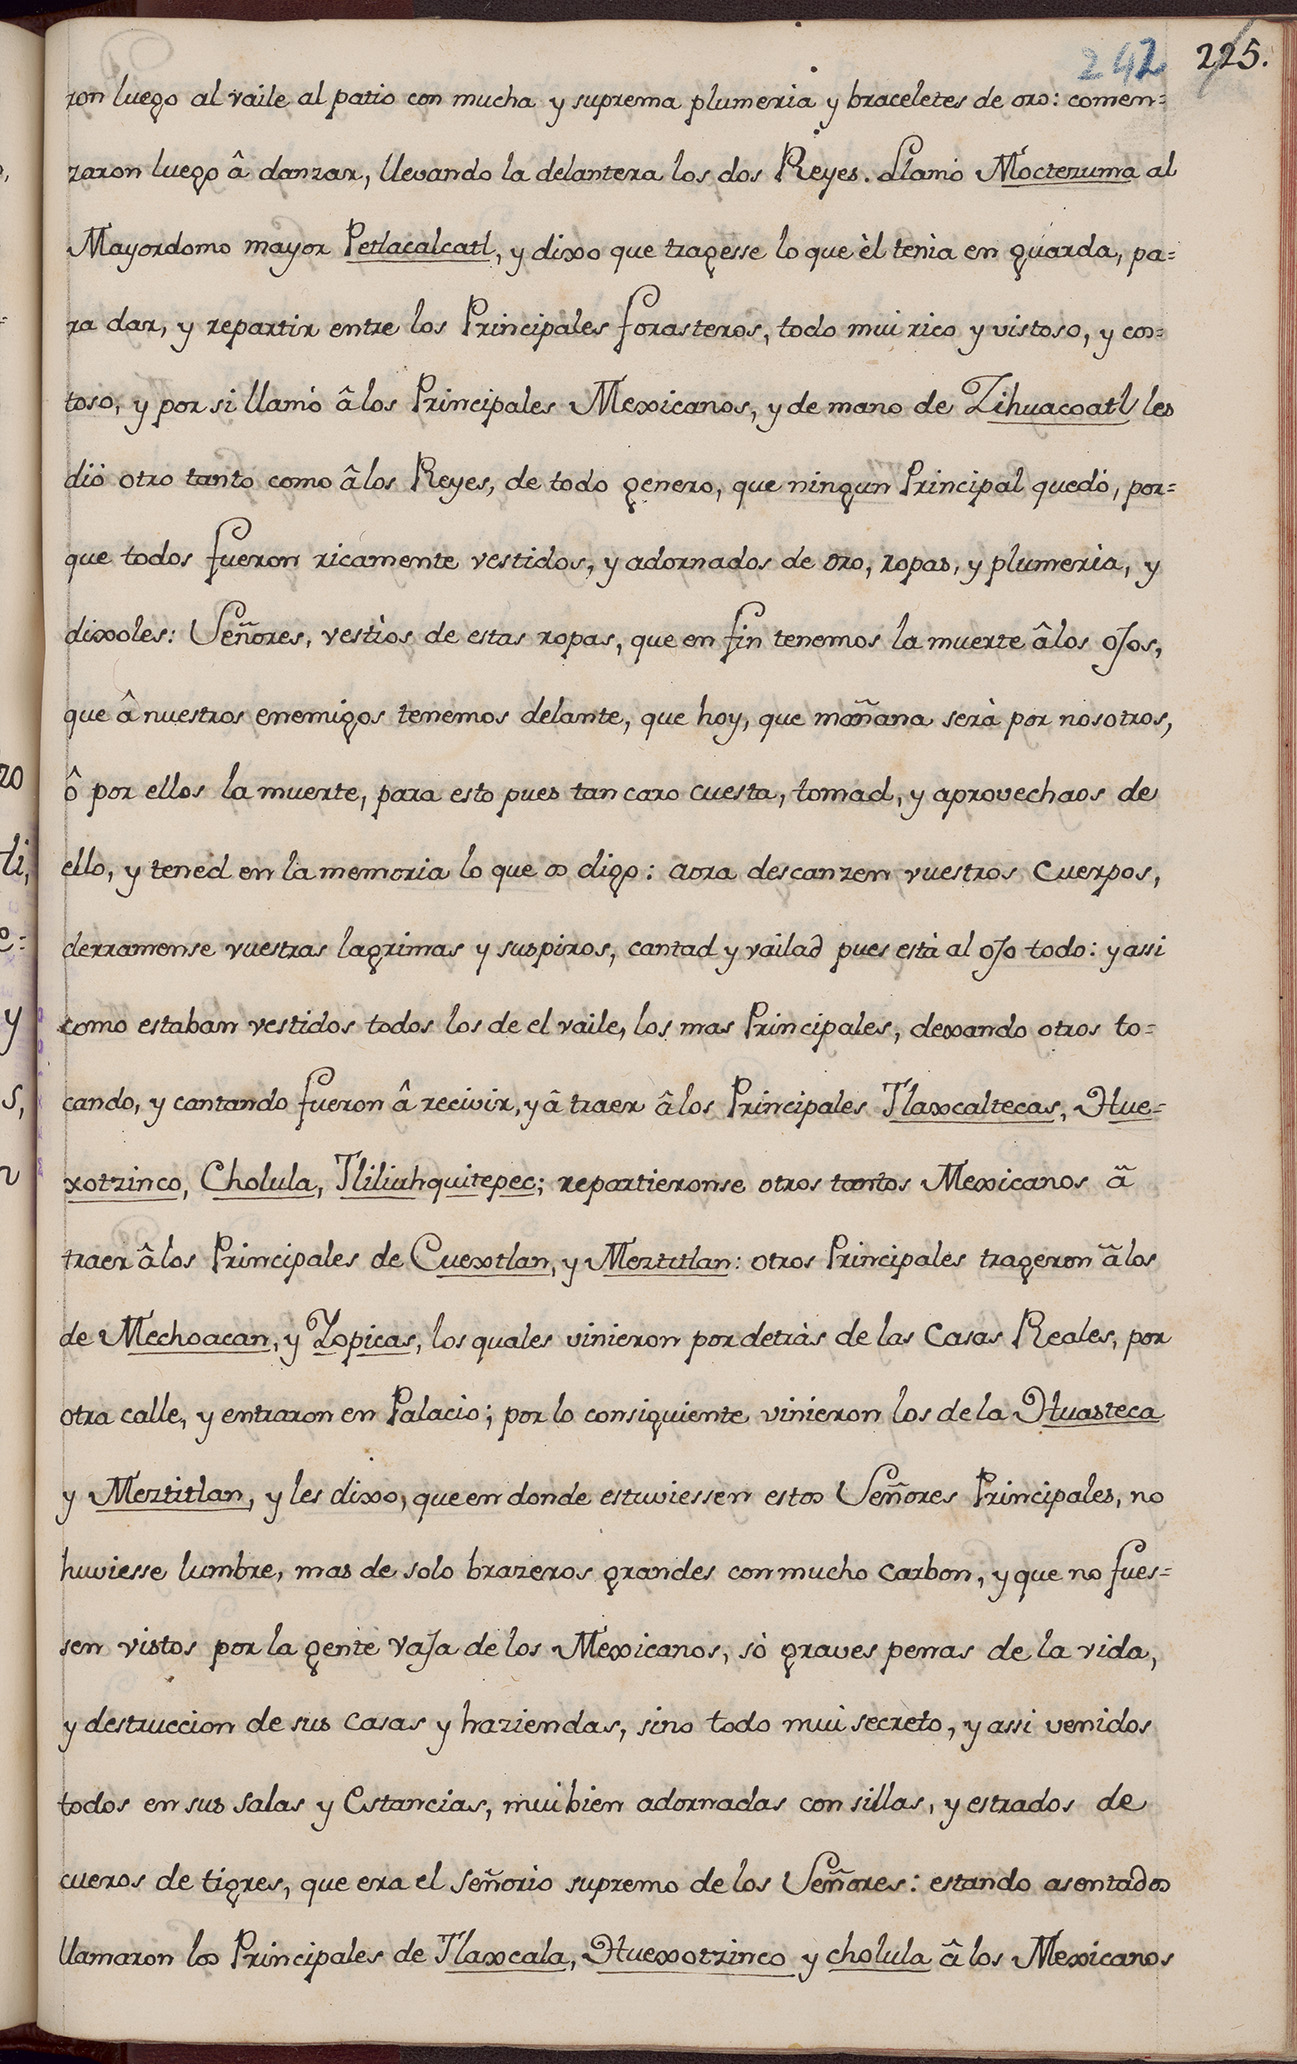 242 225.
ron luego al vaile al patio con mucha y suprema plumeria y braceletes de oro: comen=
zaron luego â danzar, llevando la delantera los dos Reyes. Llamó Moctezuma al
Mayordomo mayor Petlacalcatl, y dixo que tragesse lo que èl tenia en guarda, pa=
ra dar, y repartir entre los Principales forasteros, todo mui rico y vistoso, y cos=
toso, y por si llamó â los Principales Mexicanos, y de mano de Zihuacoatl les
diò otro tanto como â los Reyes, de todo genero, que ningun Principal quedó, por=
que todos fueron ricamente vestidos, y adornados de oro, ropas, y plumeria, y
dixoles: Señores, vestios de estas ropas, que en fin tenemos la muerte â los ojos,
que â nuestros enemigos tenemos delante, que hoy, que mañana serà por nosotros,
ô por ellos la muerte, para esto pues tan caro cuesta, tomad, y aprovechaos de
ello, y tened en la memoria lo que os digo: aora descanzen vuestros cuerpos,
derramense vuestras lagrimas y suspiros, cantad y vailad pues està al ojo todo: y assi
como estaban vestidos todos los de el vaile, los mas Principales, dexando otros to=
cando, y cantando fueron â recivir, y â traer â los Principales Tlaxcaltecas, Hue=
xotzinco, Cholula, Tliliuhquitepec; repartieronse otros tantos Mexicanos ã
traer â los Principales de Cuextlan, y Meztitlan: otros Principales trageron ã los
de Mechoacan, y Yopicas, los quales vinieron por detràs de las Casas Reales, por
otra calle, y entraron en Palacio; por lo consiguiente vinieron los de la Huasteca
y Meztitlan, y les dixo, que en donde estuviessen estos Señores Principales, no
huviesse lumbre, mas de solo brazeros grandes con mucho carbon, y que no fues=
sen vistos por la gente vaja de los Mexicanos, sò graves penas de la vida,
y destruccion de sus casas y haziendas, sino todo mui secreto, y assi venidos
todos en sus salas y Estancias, mui bien adornadas con sillas, y estrados de
cueros de tigres, que era el señorio supremo de los Señores: estando asentados
llamaron los Principales de Tlaxcala, Huexotzinco y cholula â los Mexicanos